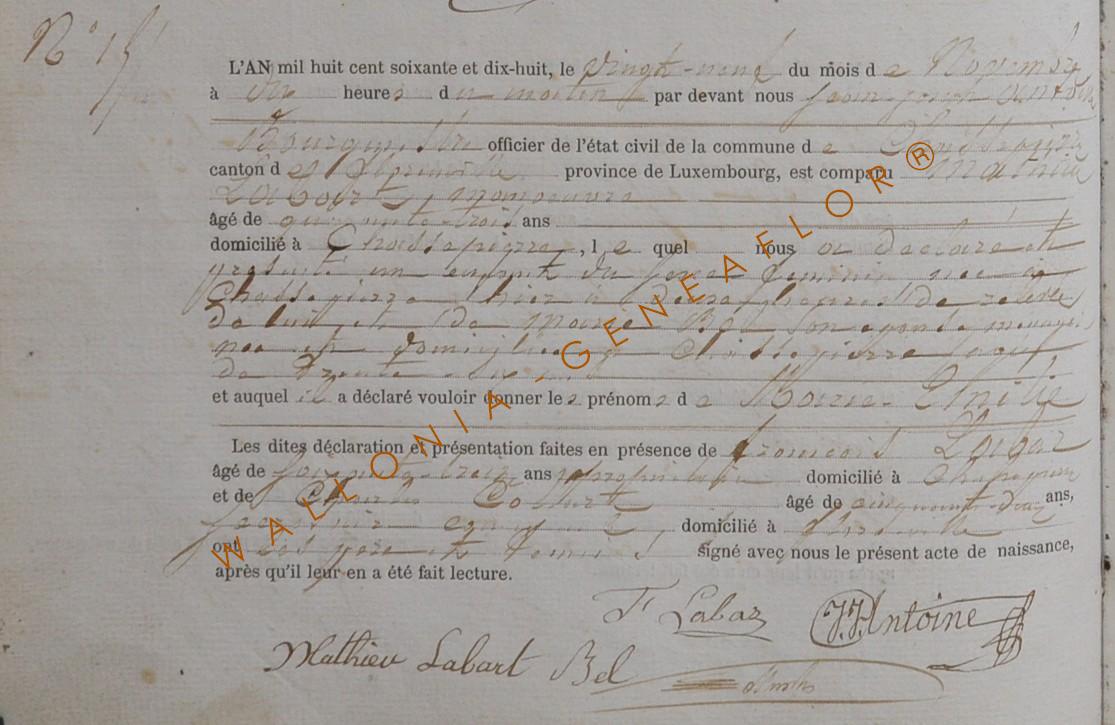 N° 15
L'AN mil huit cent soixante et dix-huit, le vingt-neuf du mois de Novembre
à heures du matin par devant nous Jean Joseph Antoine
Bourgmestre officier de l'état civil de la commune de Chassepierre
canton de Florenville province de Luxembourg, est comparu Mathieu
Labart, manoeuvre
âgé de quarante-trois ans
domicilié à Chassepierre, le quel nous a déclaré et
présenté un enfant du sexe féminin née à
Chassepierre hier à heures de relevée
de lui et de Marie Bel son épouse
née et domiciliée à Chassepierre âgée
de trente
et auquel il a déclaré vouloir donner les prénoms de Marie
Les dites déclaration et présentation faites en présence de François Labaz
âgé de ans propriétaire domicilié à Chassepierre
et de Charles âgé de cinquante-deux ans,
domicilié à Florenville
ont les père et témoins, signé avec nous le présent acte de naissance,
après qu'il leur en a été fait lecture.
F Labaz J.J. Antoine
Mathieu Labart Bel
WALLONIA GENEAFLOR®